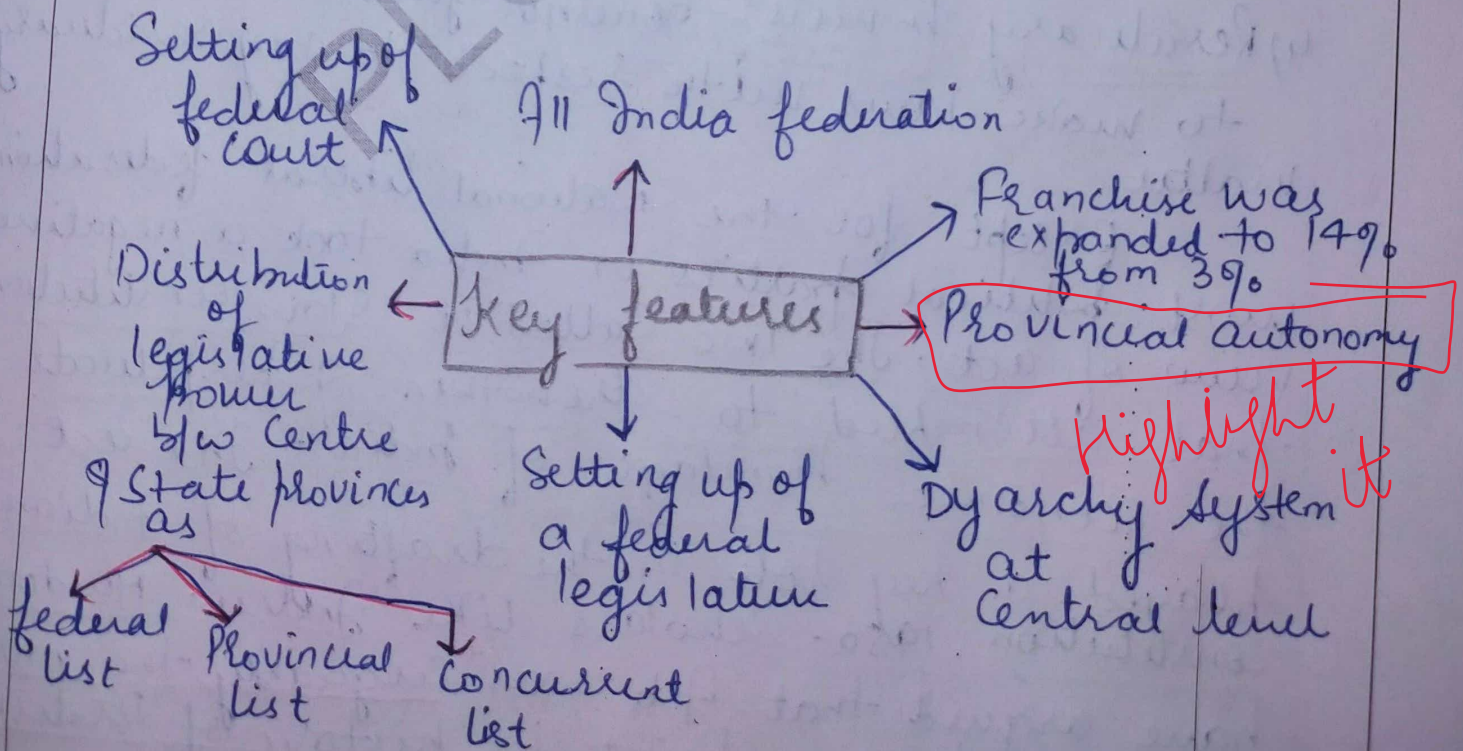 Setting up of
federal
court
All India federation
Franchise was
expanded to 14%
from 3%
Distribution
of
legislative
power
b/w Centre
& State provinces
as
Key features
Provincial autonomy
Highlight
it
Setting up of
a federal
legislature
Dyarchy System
at
Central level
federal
list
Provincial
list
Concurrent
list